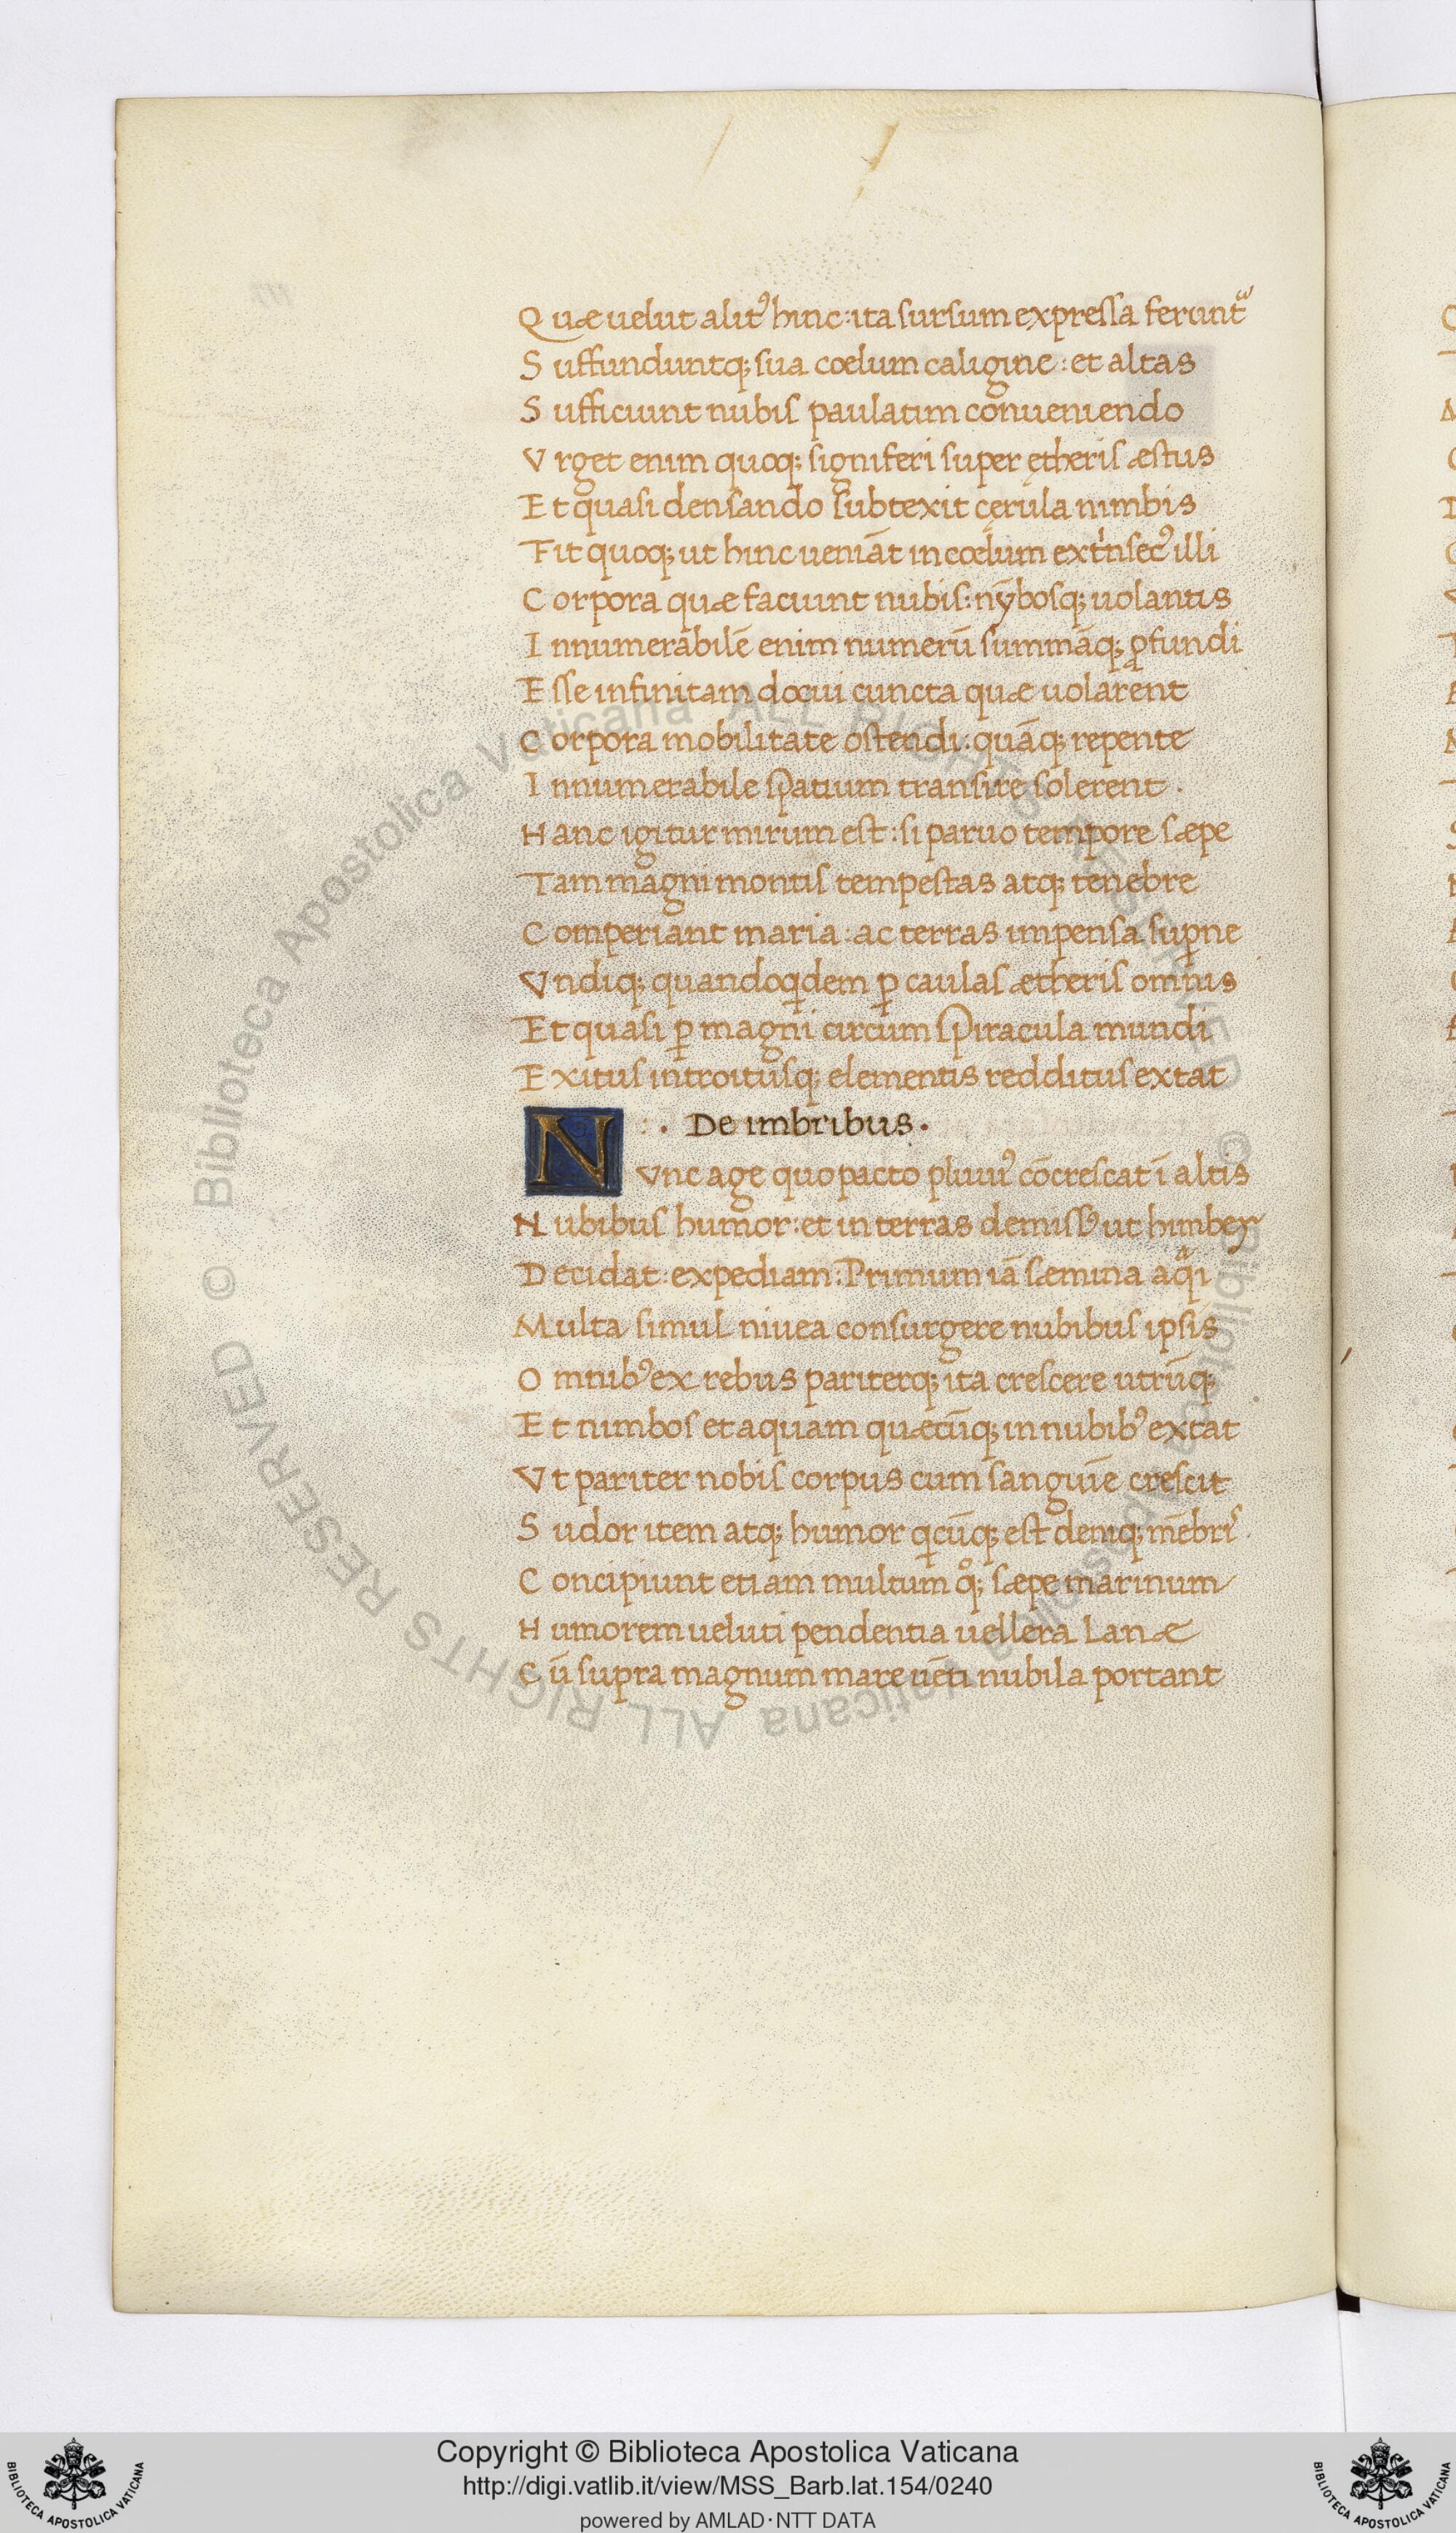 Quæ uelut alitꝰ hinc: ita sursum expressa ferunt᷑
Suffunduntq; sua cœlum caligine: et altas
Sufficiunt nubis paulatim conueniendo
Vrget enim quoq; signiferi super ętheris æstus
Et quasi densando subtexit cęrula nimbis
Fit quoq; ut hinc ueniāt in cœlum extͥnsecꝰ illi
Corpora quæ faciunt nubis: nȳbosq; uolantis
Innumerabilē enim numerū summāq; ꝓfundi
Esse infinitam docui cuncta quæ uolarent
Corpora mobilitate ostendi: quāq; repente
Innumerabile spatium transire solerent.
Hanc igitur mirum est: si paruo tempore sæpe
Tam magni montis tempestas atq; tenebre
Comperiant maria: ac terras impensa suꝑne
Vndiq; quandoqͥdem ꝑ caulas ætheris omnis
Et quasi ꝑ magni circum spiracula mundi
Exitus introitusq; elementis redditus extat
De imbribus.
NVnc age quo pacto pluuiꝰ cōcrescat ī altis
Nubibus humor: et in terras demissꝰ ut himber
Decidat: expediam: Primum iā sæmina aqᷓi
Multa simul niuea consurgere nubibus ipsis
Omnibꝰ ex rebus pariterq; ita crescere utrūq;
Et nimbos et aquam quæcūq; in nubibꝰ extat
Vt pariter nobis corpus cum sanguīe crescit
Sudor item atq; humor qͥcūq; est deniq; mēbrͥs
Concipiunt etiam multum qͦq; sæpe marinum
Humorem ueluti pendentia uellera Lanæ
Cū supra magnum mare uēti nubila portant
© Biblioteca Apostolica Vaticana ALL RIGHTS RESERVED
© Biblioteca Apostolica Vaticana ALL RIGHTS RESERVED
Copyright © Biblioteca Apostolica Vaticana
http://digi.vatlib.it/view/MSS_Barb.lat.154/0240
powered by AMLAD·NTT DATA
BIBLIOTECA APOSTOLICA VATICANA
BIBLIOTECA APOSTOLICA VATICANA